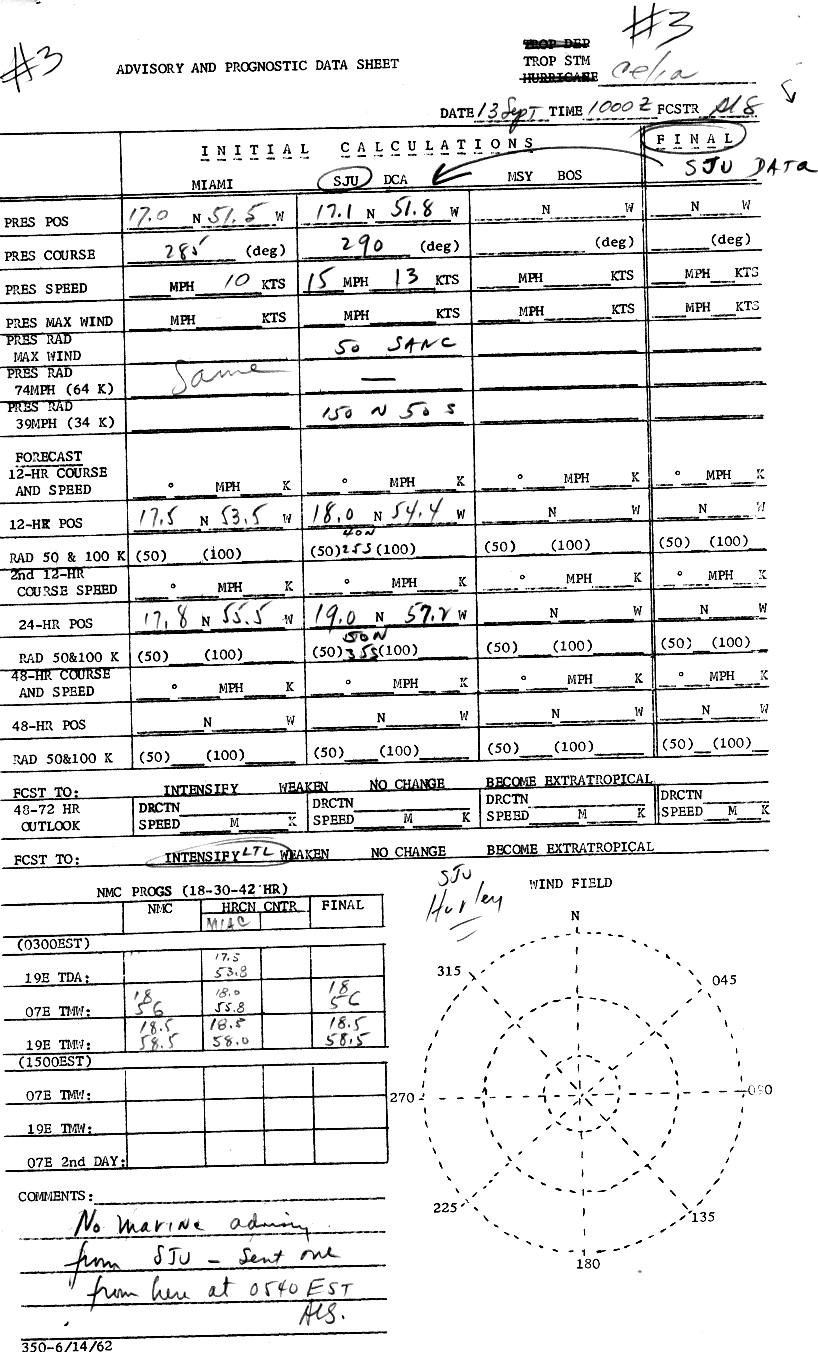 #3
#3
ADVISORY AND PROGNOSTIC DATA SHEET
TROP DEP
TROP STM
HURRICANE Celia
DATE 13 Sept TIME 1000 Z FCSTR ALS
INITIAL CALCULATIONS FINAL
MIAMI SJU DCA MSY BOS SJU DATA
PRES POS 17.0 N 51.5 W 17.1 N 51.8 W N W N W
PRES COURSE 285 (deg) 290 (deg) (deg) (deg)
PRES SPEED MPH 10 KTS 15 MPH 13 KTS MPH KTS MPH KTS
PRES MAX WIND MPH KTS MPH KTS MPH KTS MPH KTS
PRES RAD
MAX WIND 50 SANC
PRES RAD
74MPH (64 K) Same —
PRES RAD
39MPH (34 K) 150 N 50 S
FORECAST
12-HR COURSE
AND SPEED ° MPH K ° MPH K ° MPH K ° MPH K
12-HR POS 17.5 N 53.5 W 18.0 N 54.4 W N W N W
40N
RAD 50 & 100 K (50) (100) (50) 25S (100) (50) (100) (50) (100)
2nd 12-HR
COURSE SPEED ° MPH K ° MPH K ° MPH K ° MPH K
24-HR POS 17.8 N 55.5 W 19.0 N 57.2 W N W N W
50N
RAD 50&100 K (50) (100) (50) 35S (100) (50) (100) (50) (100)
48-HR COURSE
AND SPEED ° MPH K ° MPH K ° MPH K ° MPH K
48-HR POS N W N W N W N W
RAD 50&100 K (50) (100) (50) (100) (50) (100) (50) (100)
FCST TO: INTENSIFY WEAKEN NO CHANGE BECOME EXTRATROPICAL
48-72 HR DRCTN DRCTN DRCTN DRCTN
OUTLOOK SPEED M K SPEED M K SPEED M K SPEED M K
FCST TO: INTENSIFY LTL WEAKEN NO CHANGE BECOME EXTRATROPICAL
NMC PROGS (18-30-42 HR)
NMC HRCN CNTR FINAL
MIAC
(0300EST)
17.5
19E TDA: 53.8
18 18.0 18
07E TMW: 56 55.8 56
18.5 18.5 18.5
19E TMW: 58.5 58.0 58.5
(1500EST)
07E TMW:
19E TMW:
07E 2nd DAY:
SJU
Hurley
WIND FIELD
N
315 045
270 090
225 135
180
COMMENTS:
No marine advisy
from SJU – Sent one
from here at 0540 EST
ALS.
350-6/14/62